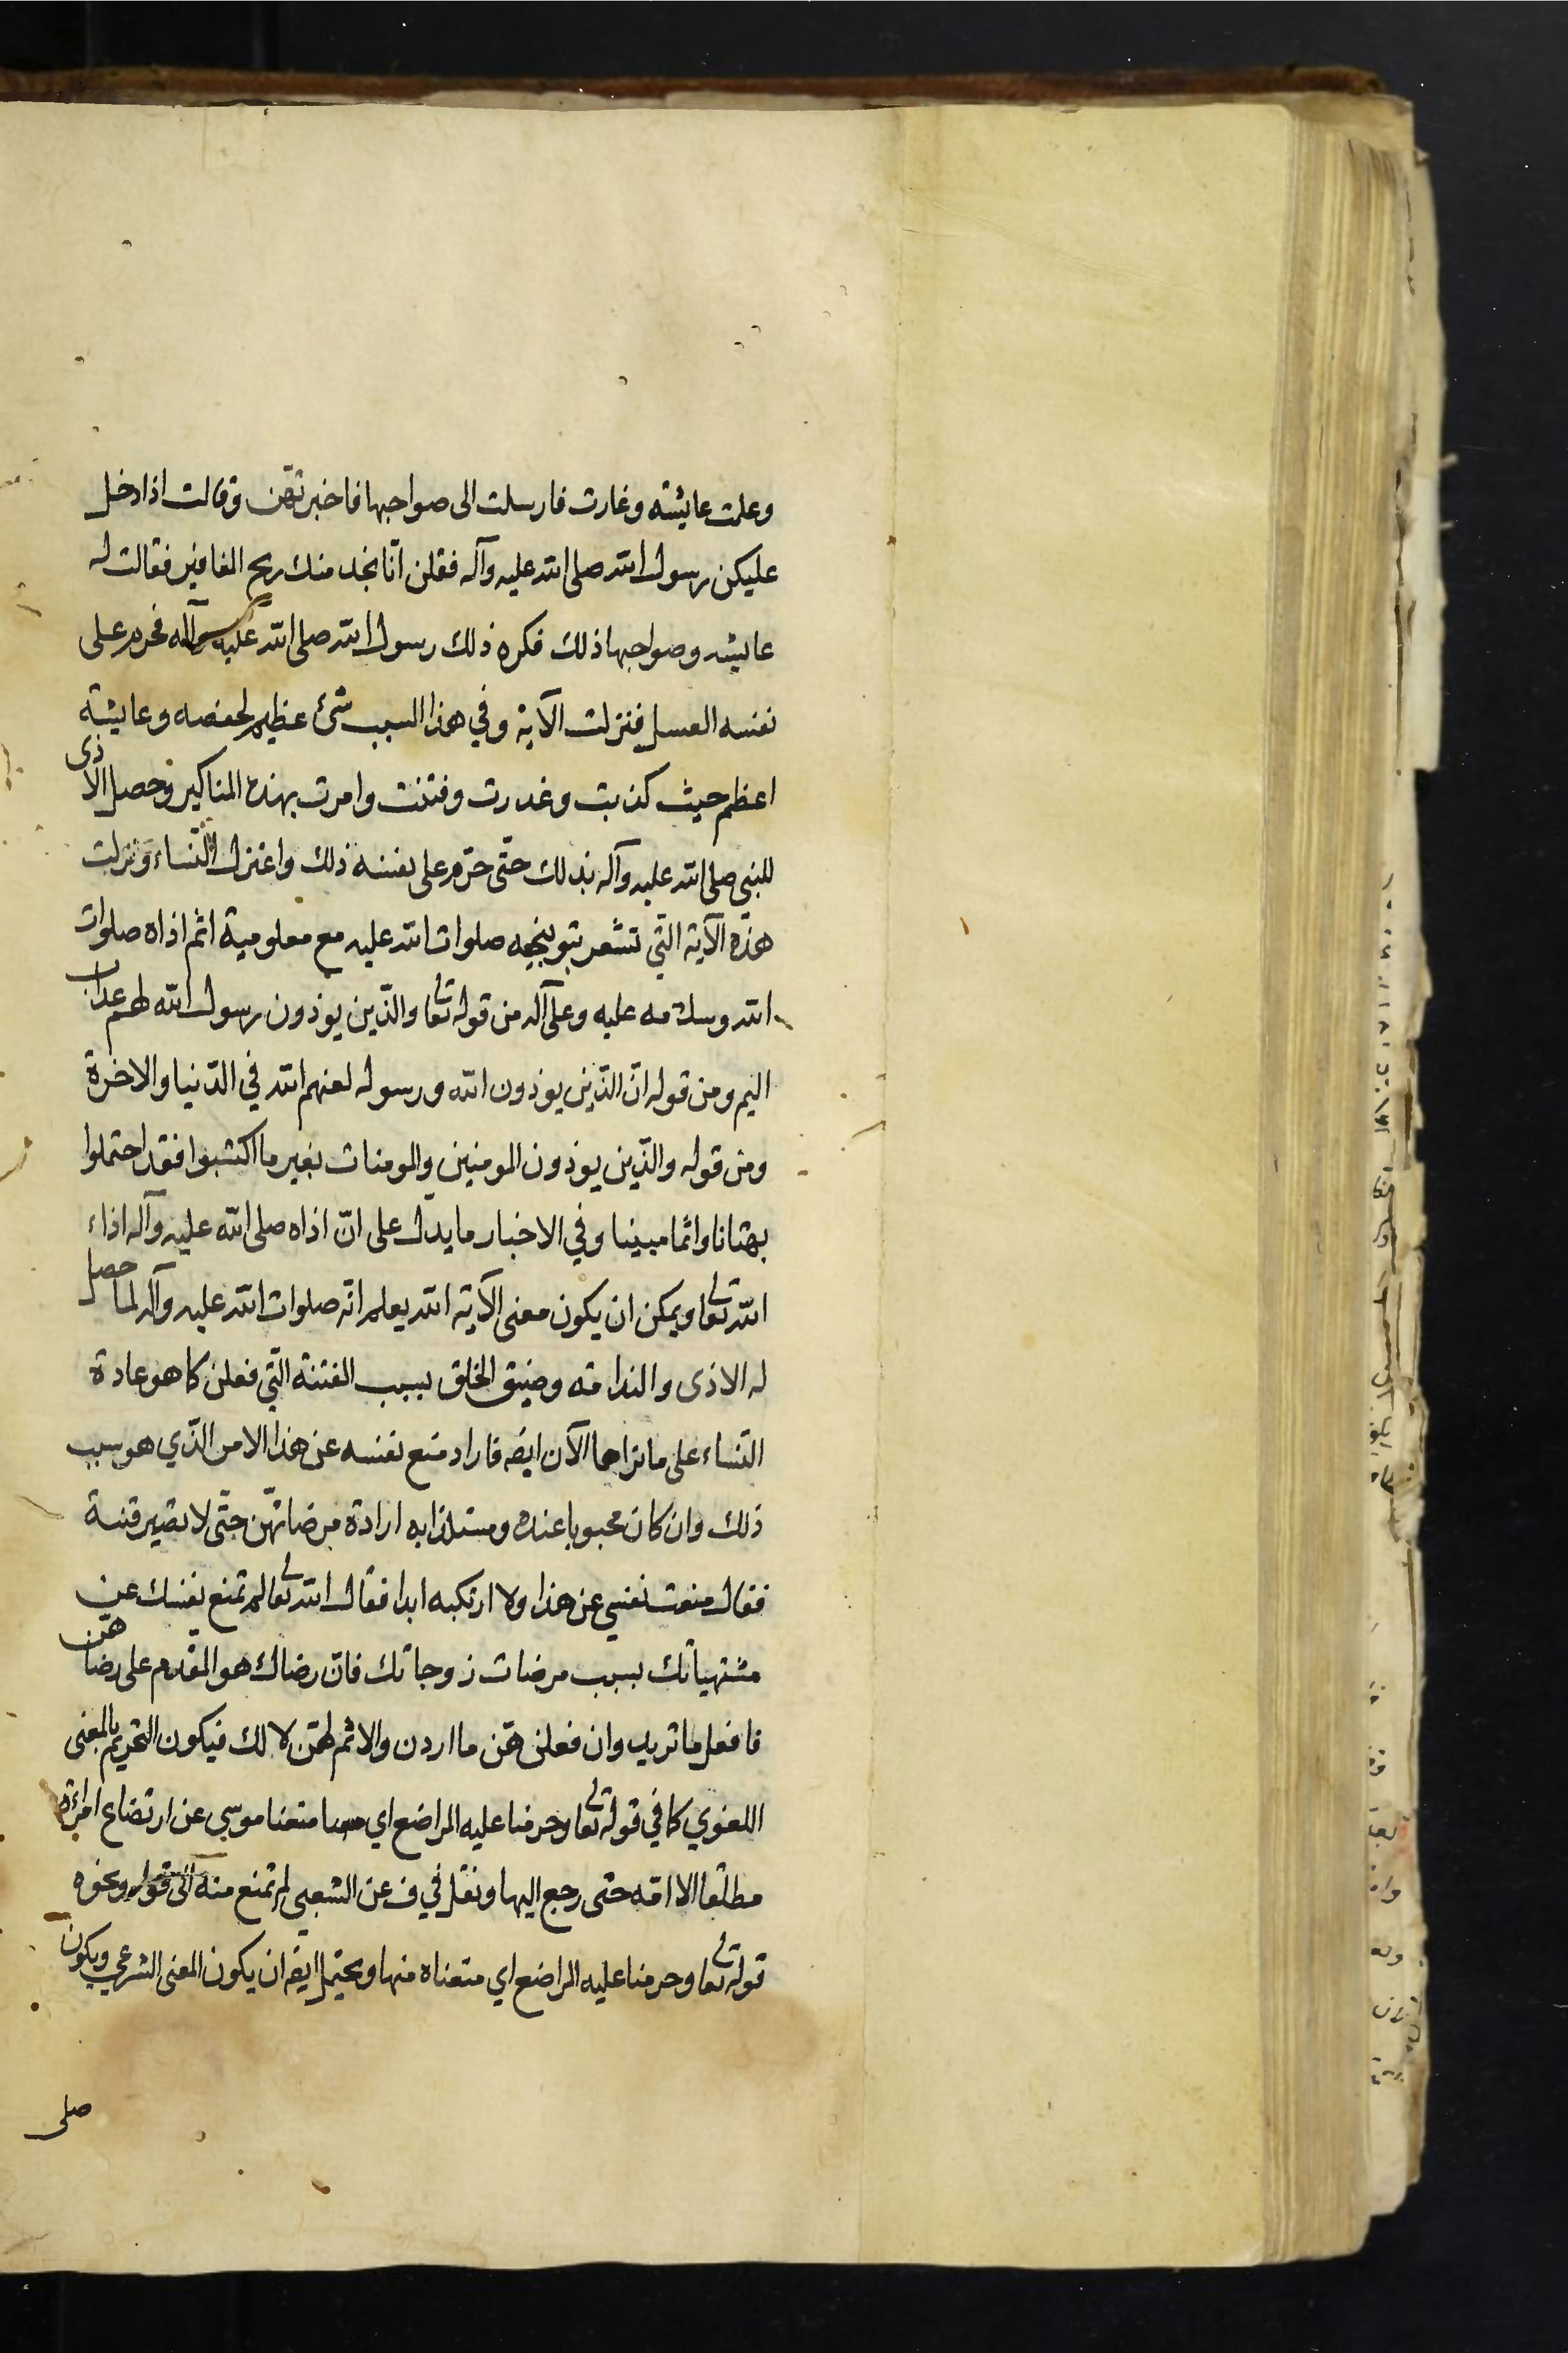 وعلمت عايشه وغارت فارسلت الى صواحبها فاخبرتهن وقالت اذا دخل
عليكن رسول الله صلى الله عليه وآله فقلن انّا نجد منك ريح المغافير فقالت له
عايشه وصواحبها ذلك فكره ذلك رسول الله صلى الله عليه وآله فحرم على
نفسه العسل فنزلت الآية وفي هذا السبب شئ عظيم لحفصه وعايشة
اعظم حيث كذبت وغدرت وفتنت وامرت بهذه المناكير وحصل الاذى
للنبي صلى الله عليه وآله بذلك حتّى حرّم على نفسه ذلك واعتزل النّساء ونزلت
هذه الآية التي تشعر بتوبيخه صلوات الله عليه مع معلومية اثم اذاه صلوات
الله وسلامه عليه وعلى آله من قوله تعالى والّذين يوذون رسول الله لهم عذاب
اليم ومن قوله انّ الّذين يوذون الله ورسوله لعنهم الله في الدّنيا والاخرة
ومن قوله والّذين يوذون المومنين والمومنات بغير ما اكتسبوا فقد احتملوا
بهتانا واثما مبينا وفي الاخبار ما يدل على انّ اذاه صلى الله عليه وآله اذاء
الله تعالى ويمكن ان يكون معنى الآية الله يعلم انّه صلوات الله عليه وآله لما حصل
له الاذى والندامة وضيق الخلق بسبب الفتنة الّتي فعلن كما هو عادة
النّساء على ما نراها الآن ايضه فاراد منع نفسه عن هذا الامر الّذي هو سبب
ذلك وان كان محبوبا عنده ومستلذا به ارادة مرضاتهنّ حتّى لا تصير فتنة
فقال منعت نفسي عن هذا ولا ارتكبه ابدا فقال الله تعالى لم تمنع نفسك عن
مشتهياتك بسبب مرضات زوجاتك فانّ رضاك هو المقدم على رضاهنّ
فافعل ما تريد وان فعلن هنّ ما اردن والاثم لهنّ لا لك فيكون التحريم بالمعنى
اللغوي كما في قوله تعالى وحرمنا عليه المراضع اي منعنا موسى عن ارتضاع امرائة
مطلقا الا امّه حتى رجع اليها ونقل في ف عن الشعبي لم تمنع منه الى قوله ونحوه
قوله تعالى وحرمنا عليه المراضع اي منعناه منها ويحتمل ايضه ان يكون المعنى الشرعي ويكون
صلى